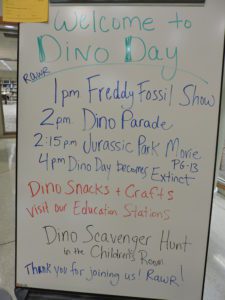 Welcome to
Dino Day
RAWR
1pm Freddy Fossil Show
2pm Dino Parade
2:15pm Jurassic Park Movie
PG-13
4pm Dino Day becomes Extinct
Dino Snacks + Crafts
Visit our Education Stations
Dino Scavenger Hunt
in the Children's Room
Thank you for joining us! RAWR!